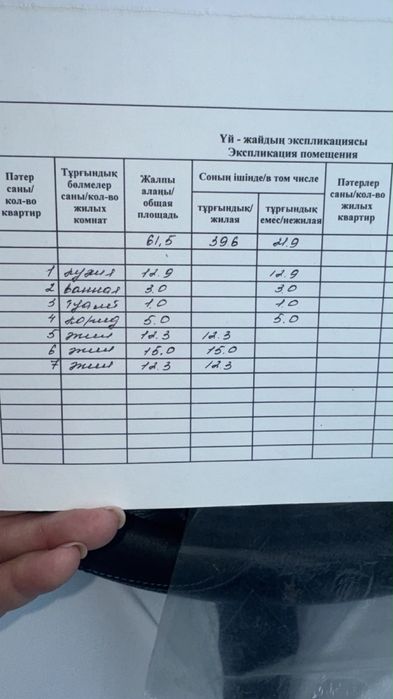 Үй - жайдың экспликациясы
Экспликация помещения
Пәтер саны/ кол-во квартир | Тұрғындық бөлмелер саны/кол-во жилых комнат | Жалпы алаңы/ общая площадь | Соның ішінде/в том числе | Пәтерлер саны/кол-во жилых квартир
тұрғындық/ жилая | тұрғындық емес/нежилая
61,5 | 39.6 | 21.9
1 | кухня | 12.9 | 12.9
2 | ванная | 3.0 | 3.0
3 | туалет | 1.0 | 1.0
4 | корид | 5.0 | 5.0
5 | жил | 12.3 | 12.3
6 | жил | 15.0 | 15.0
7 | жил | 12.3 | 12.3